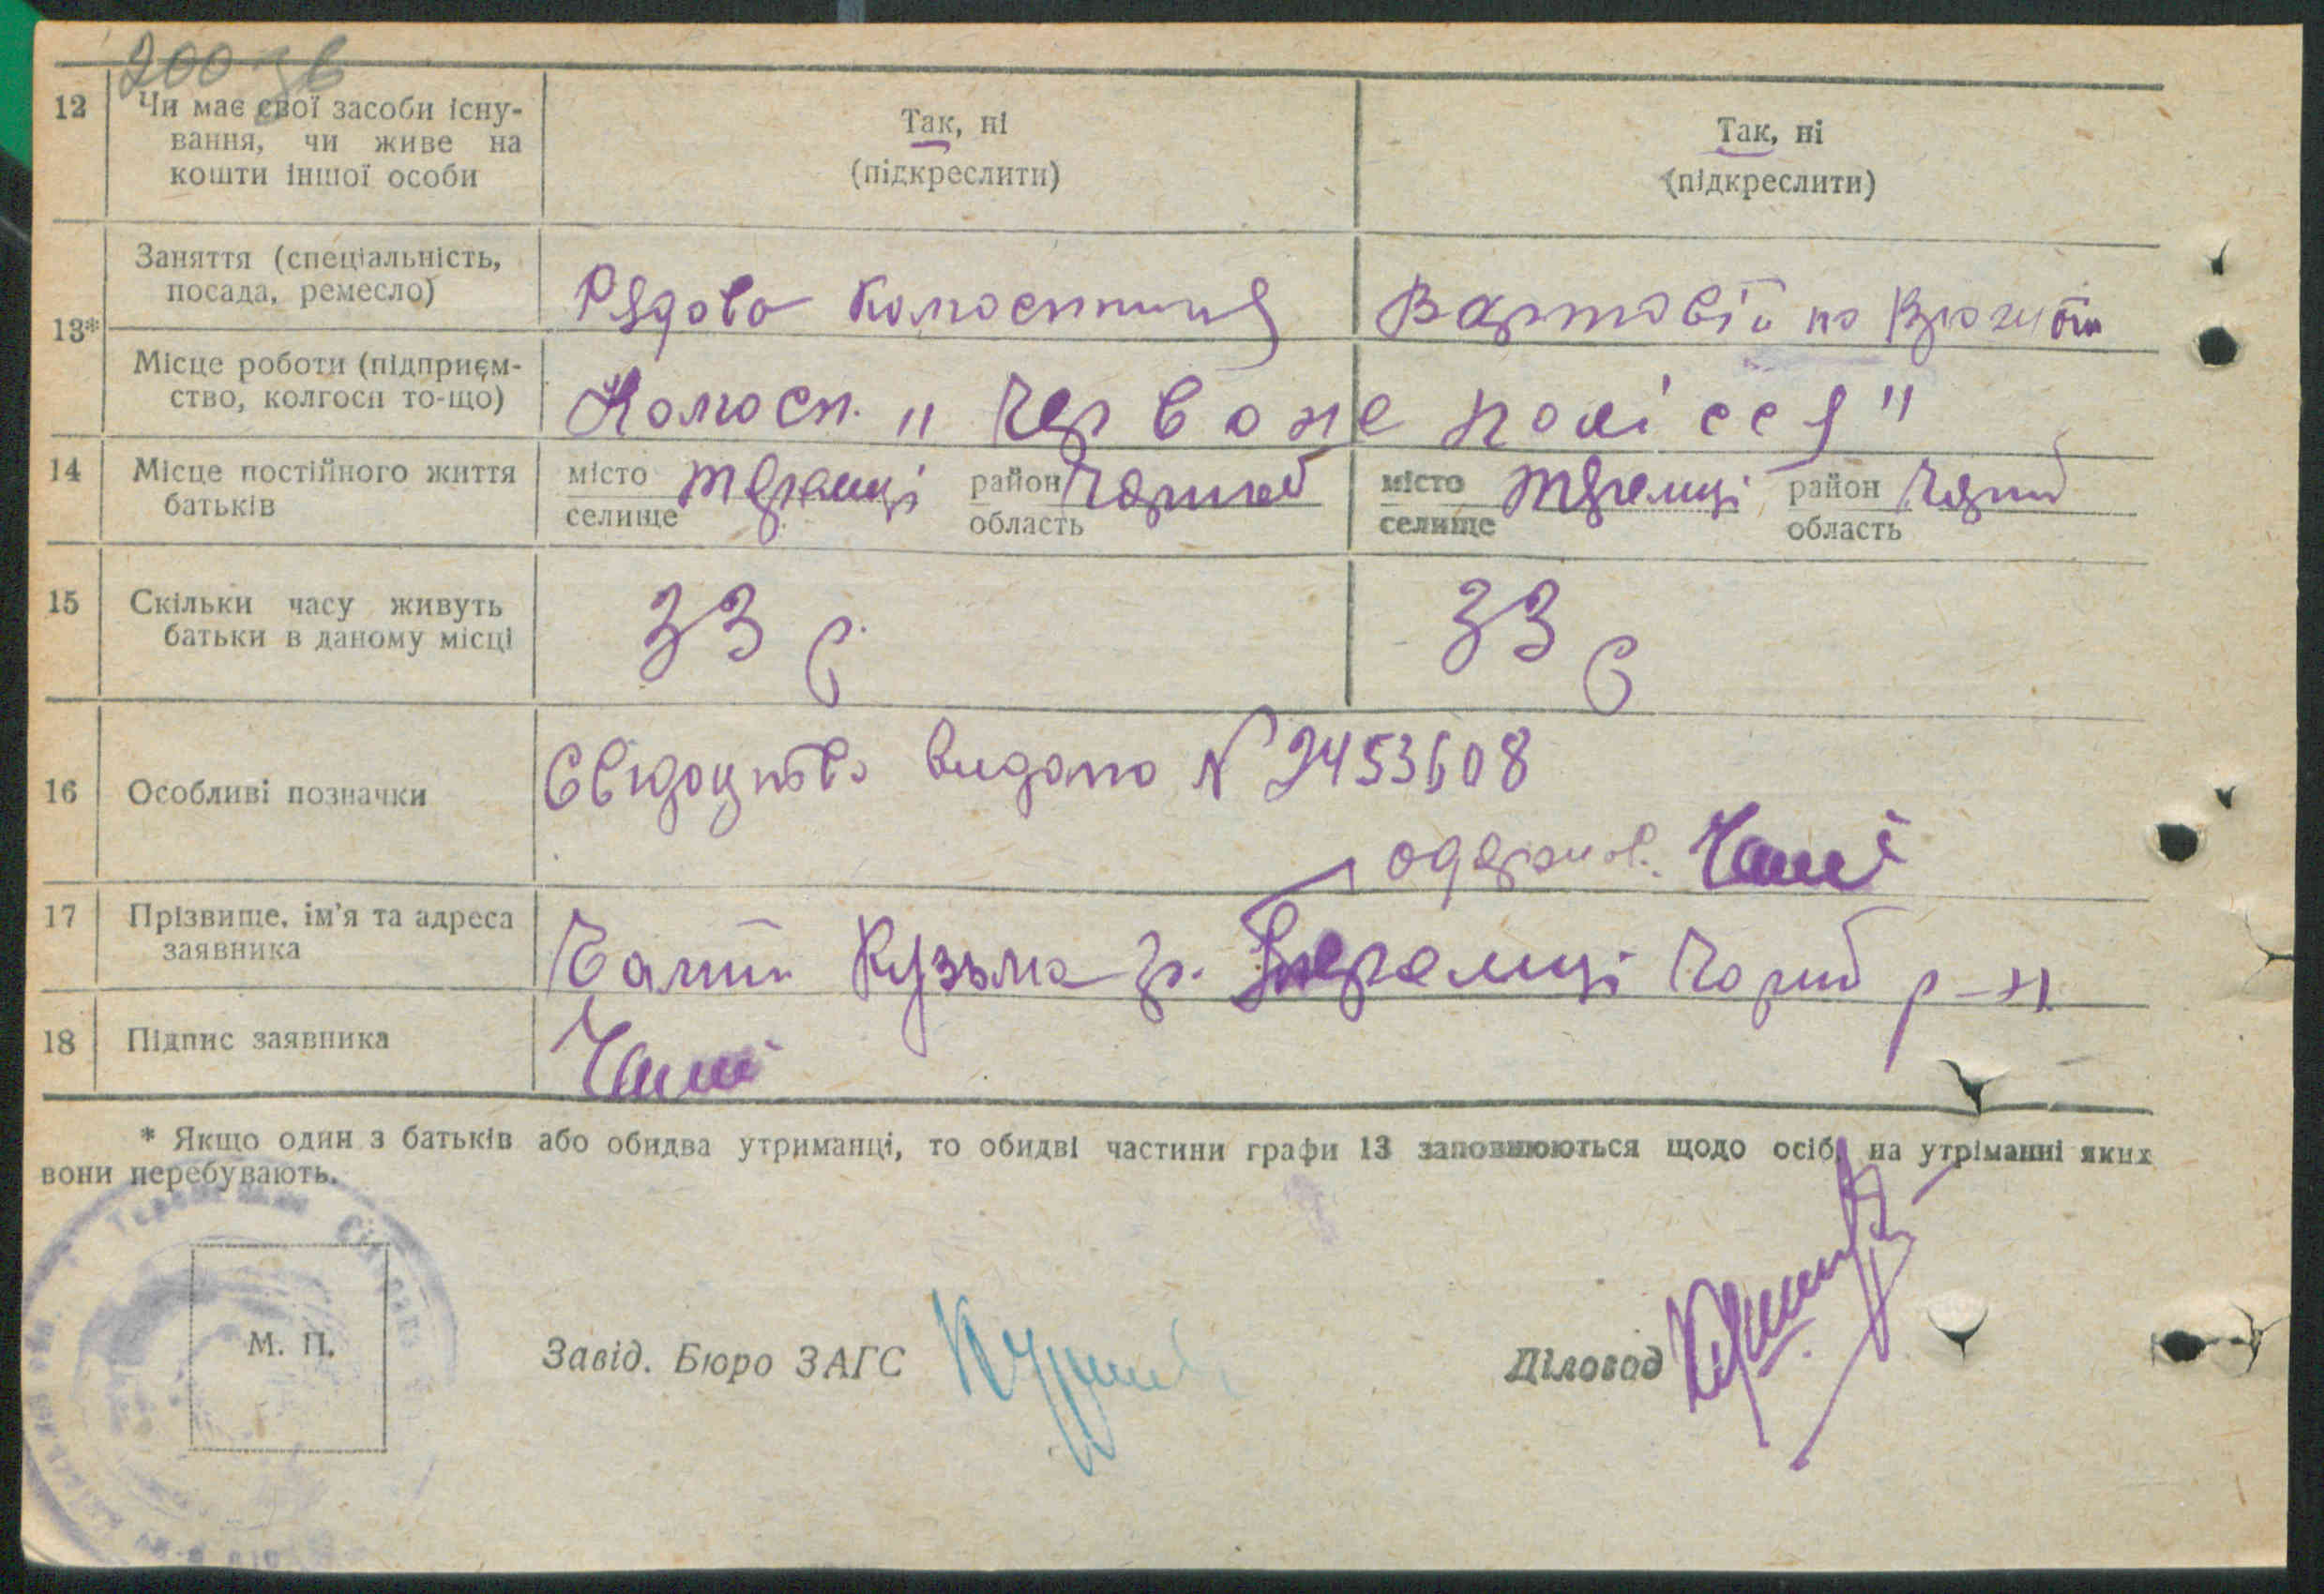 200 зв
12
Чи має свої засоби існу-
вання, чи живе на
кошти іншої особи
Так, ні
(підкреслити)
Так, ні
(підкреслити)
13*
Заняття (спеціальність,
посада, ремесло)
Рядова колгоспниця
Вартовій по
Місце роботи (підприєм-
ство, колгосп то-що)
Колгосп. „Червоне полісся"
14
Місце постійного життя
батьків
місто
селище
Теремці
район
область
Чорноб
місто
селище
Теремці
район
область
Чорноб
15
Скільки часу живуть
батьки в даному місці
33 р.
33 р
16
Особливі позначки
Свідоцтво видано № 2453608
одержав.
17
Прізвище, ім'я та адреса
заявника
Кузьма гр. Теремці Чорноб р-н
18
Підпис заявника
* Якщо один з батьків або обидва утриманці, то обидві частини графи 13 заповнюються щодо осіб, на утріманні яких
вони перебувають.
М. П.
Завід. Бюро ЗАГС
Діловод